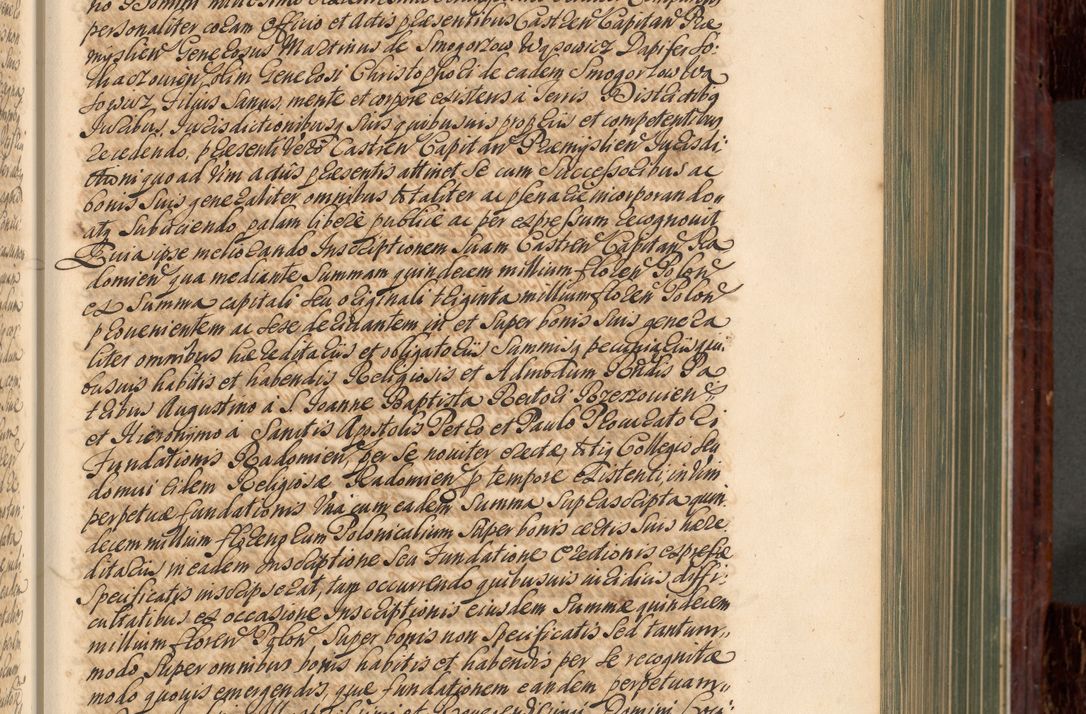 personaliter coram Officio et Actis praesentibus Castren Capitan Prae
myslien Generosus Martinus de Smogorzow Wąsowicz Dapifer So
chaczovien, olim Generosi Christophori de eadem Smogorzow Wą
sowicz, Filius Sanus, mente et corpore existens à Terris Districtibq
Jucibus, Jurisdictionibusq suis quibusuis proprijs et competentibus
recedendo, praesenti verò Castren Capitan Praemyslien Jurisdi
ctioni quo ad Vim actûs praesentis attinet se cum Successoribus ac
bonis Suis generaliter omnibus totaliter ac plenarie incorporando
atq Subijciendo palam liberè publicè ac per expressum recognovit
Quia ipse meliorando Inscriptionem Suam Castren Capitan Ra
domien qua mediante Summam quindecim millium floren Polon
ex Summa capitali seu originali triginta millium floren Polon
provenientem ac sese derivantem in et Super bonis Suis genera
liter omnibus haereditarijs et obligatorijs Summisq pecuniarijs qui
busuis habitis et habendis Religiosis et Admodum Rndis Pa
tribus Augustino à S. Joanne Baptista Rectori Brzezovien
et Hieronymo à Sanctis Apostolis Petro et Paulo Procuratori
Fundationis Radomien, per Se noviter erectae, totiq Collegio seu
domui eidem Religiosae Radomien p tempore existenti, in Vim
perpetuae fundationis Vnà cum eadem Summa Suprascripta quin
decem millium florenorum Polonicalium Super bonis certis Suis haere
ditarijs in eadem Inscriptione Seu Fundatione Erectionis expresse
Specificatis inscripserat, tum occurrendo quibusuis iuridicis diffi
cultatibus ex occasione Inscriptionis eiusdem Summae quindecem
millium floren Polon Super bonis non Specificatis Sed tantum
modo Super omnibus bonis habitis et habendis per Se recognitae
modo quouis emergendis, quae fundationem eandem perpetuam